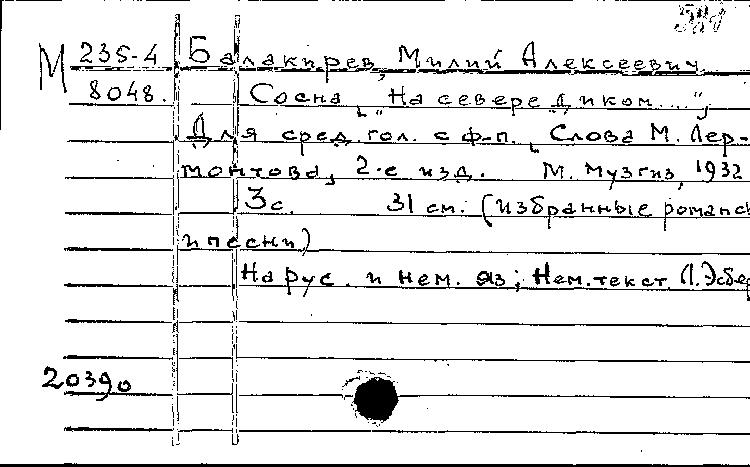 М 235-4 Балакирев, Милий Алексеевич
8048. Сосна „На севере диком...",
Для сред. гол. с ф-п., Слова М. Лер-
монтова, 2-е изд. М. Музгиз, 1932
3с. 31 см. (Избранные романс
и песни)
На рус. и нем. яз; Нем. текст Л. Эсбе
20390